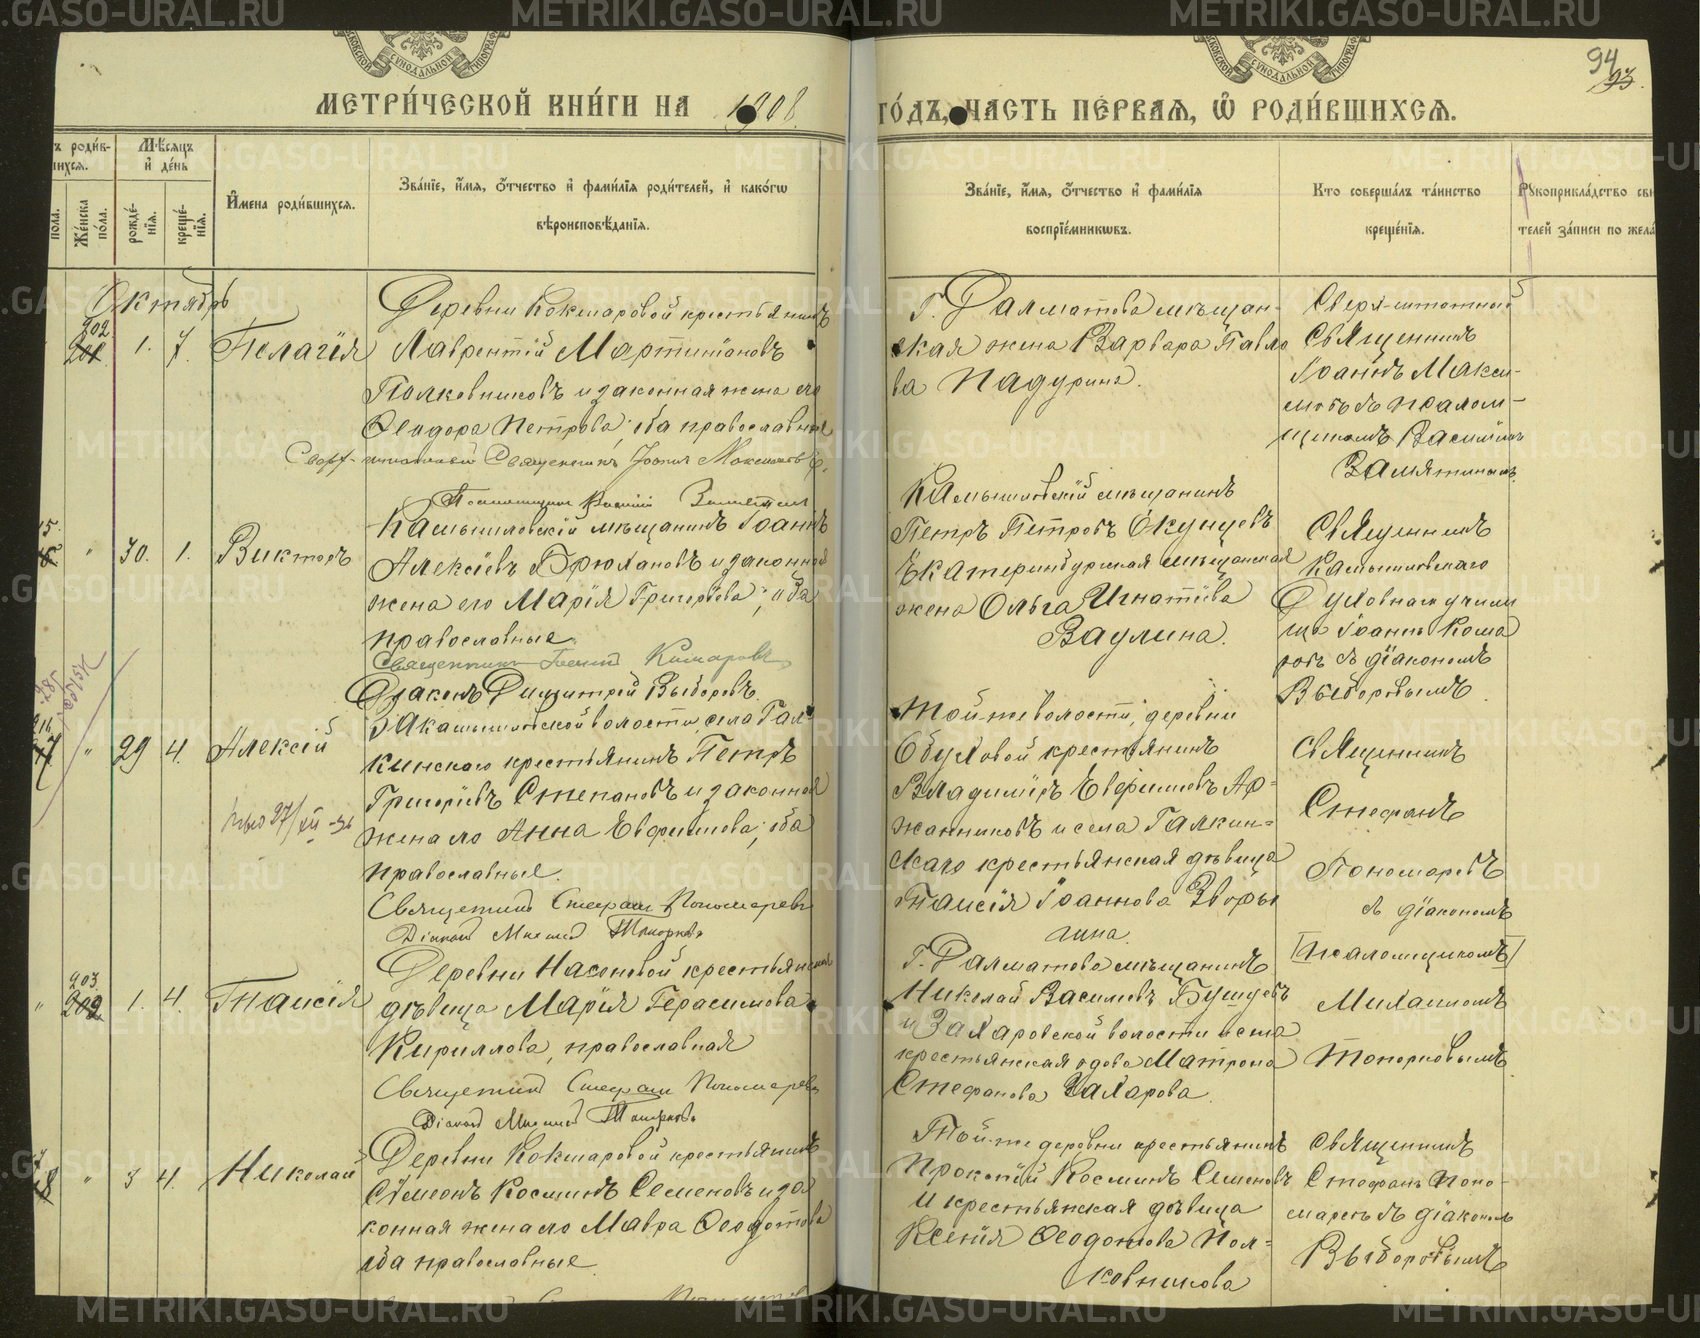 94
93.
МЕТРИ́ЧЕСКОЙ КНИ́ГИ НА 1908
ГО́ДЪ, ЧАСТЬ ПЕ́РВАЯ, Ѡ РОДИ́ВШИХСЯ.
ъ роди́в-
шихся.
Мѣ́сяцъ
и҆ де́нь
пола.
Же́нска
по́ла.
рожде́-
нїя.
креще́-
нїя.
И҆мена роди́вшихся.
Зва́нїе, и҆́мя, ѻ҆́тчество и҆ фами́лїя роди́телей, и҆ како́гѡ
вѣроисповѣ́данїя.
Зва́нїе, и҆́мя, ѻ҆́тчество и҆ фами́лїя
воспрїе́мникѡвъ.
Кто соверша́лъ та́инство
креще́нїя.
Рукоприкла́дство сви
телей за́писи по жела
Октябрь
202
201
1.
7.
Пелагія
Деревни Кокшаровой крестьянинъ
Лаврентій Мартиніановъ
Полковниковъ и законная жена его
Ѳеодора Петрова; оба православные
Сверх-штатный Священникъ Іоаннъ Максимовъ
Псаломщикъ Василій Замятинъ
Г. Далматова мѣщан-
ская жена Варвара Павло
ва Падурина.
Сверх-штатный
Священникъ
Іоаннъ Макси-
мовъ съ псалом-
щикомъ Василіемъ
Замятинымъ
15
"
30.
1.
Викторъ
Камышловскій мѣщанинъ Іоаннъ
Алексіевъ Брюхановъ и законная
жена его Марія Григоріева; оба
православные
Священникъ Іоаннъ Комаровъ
Діаконъ Димитрій Выборовъ.
Камышловскій мѣщанинъ
Петръ Петровъ Окунцовъ
Екатеринбургская мѣщанская
жена Ольга Игнатіева
Ваулина.
Священникъ
Камышловскаго
Духовнаго учили
ща Іоаннъ Кома
ровъ съ діакономъ
Выборовымъ.
16
17
"
29
4.
Алексій
Закамышловской волости, села Гал-
кинскаго крестьянинъ Петръ
Григоріевъ Степановъ и законная
жена его Анна Евфимова; оба
православные.
Священникъ Стефанъ Пономаревъ
Діаконъ Михаилъ Топорковъ
Той-же волости, деревни
Обуховой крестьянинъ
Владиміръ Евфимовъ Ар-
жанниковъ и села Галкин-
скаго крестьянская дѣвица
Таисія Іоаннова Зворы
гина.
Священникъ
Стефанъ
Пономаревъ
съ діакономъ
псаломщикомъ
Михаиломъ
Топорковымъ.
"
203.
202
1.
4.
Таисія
Деревни Насоновой крестьянская
дѣвица Марія Герасимова
Кириллова, православная
Священникъ Стефанъ Пономаревъ
Діаконъ Михаилъ Топорковъ
Г. Далматова мѣщанинъ
Николай Васильевъ Бушуевъ
и Захаровской волости и села
крестьянская вдова Матрона
Стефанова Захарова.
18
"
3
4.
Николай
Деревни Кокшаровой крестьянинъ
Сѵмеонъ Косминъ Семеновъ и за
конная жена его Мавра Ѳеодотова
оба православные.
Той-же деревни крестьянинъ
Прокопій Косминъ Семеновъ
и крестьянская дѣвица
Ксенія Ѳеодотова Пол-
ковникова
Священникъ
Стефанъ Поно-
маревъ съ діакономъ
Выборовымъ
METRIKI.GASO-URAL.RU